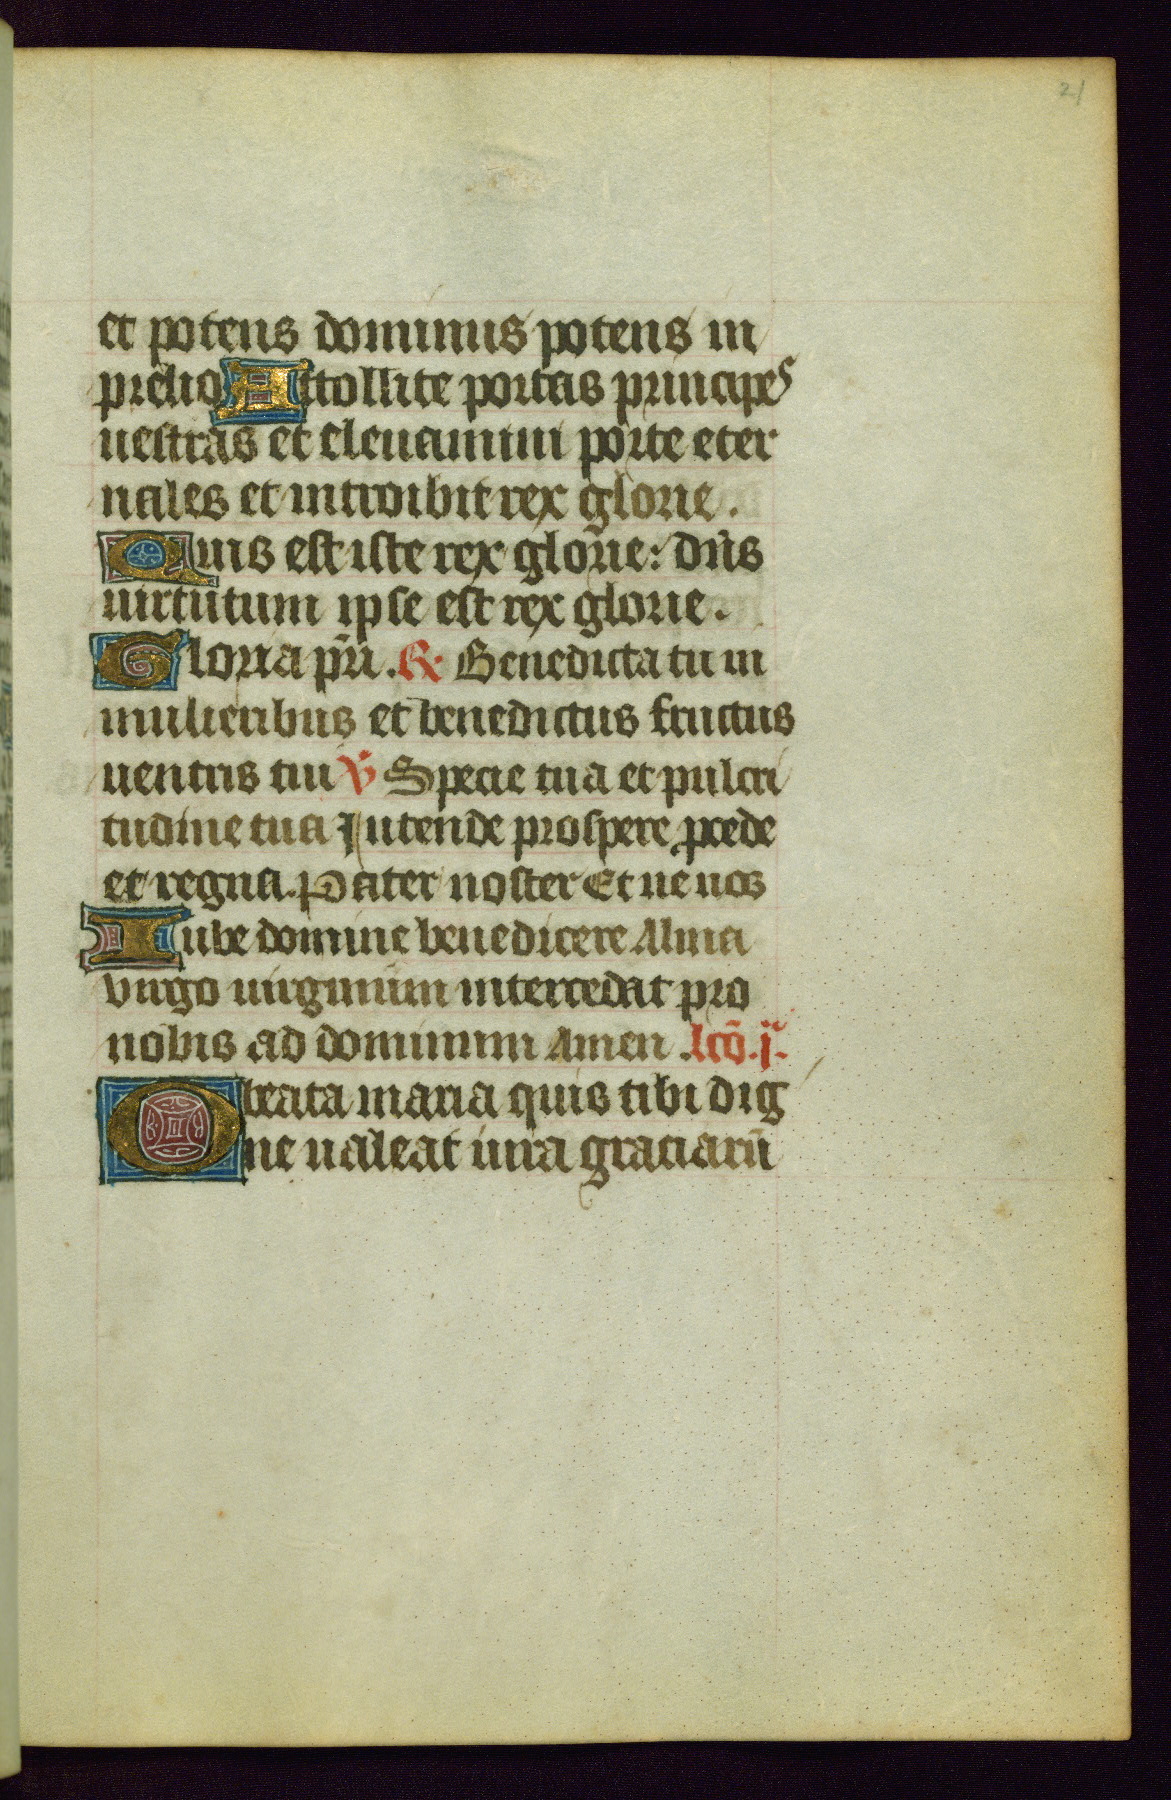 21
et potens dominus potens in
prelio Attollite portas principes
uestras et eleuamini porte eter
nales et introibit rex glorie.
Quis est iste rex glorie: dn̄s
uirtutum ipse est rex glorie.
Gloria pr̄i. R. Benedicta tu in
mulieribus et benedictus fructus
uentris tui V Specie tua et pulcri
tudine tua Intende prospere ꝓcede
et regna. Pater noster Et ne nos
Iube domine benedicere Alma
virgo uirginum intercedat pro
nobis ad dominum Amen Lcō. j.
O beata maria quis tibi dig
ne ualeat iura graciarū